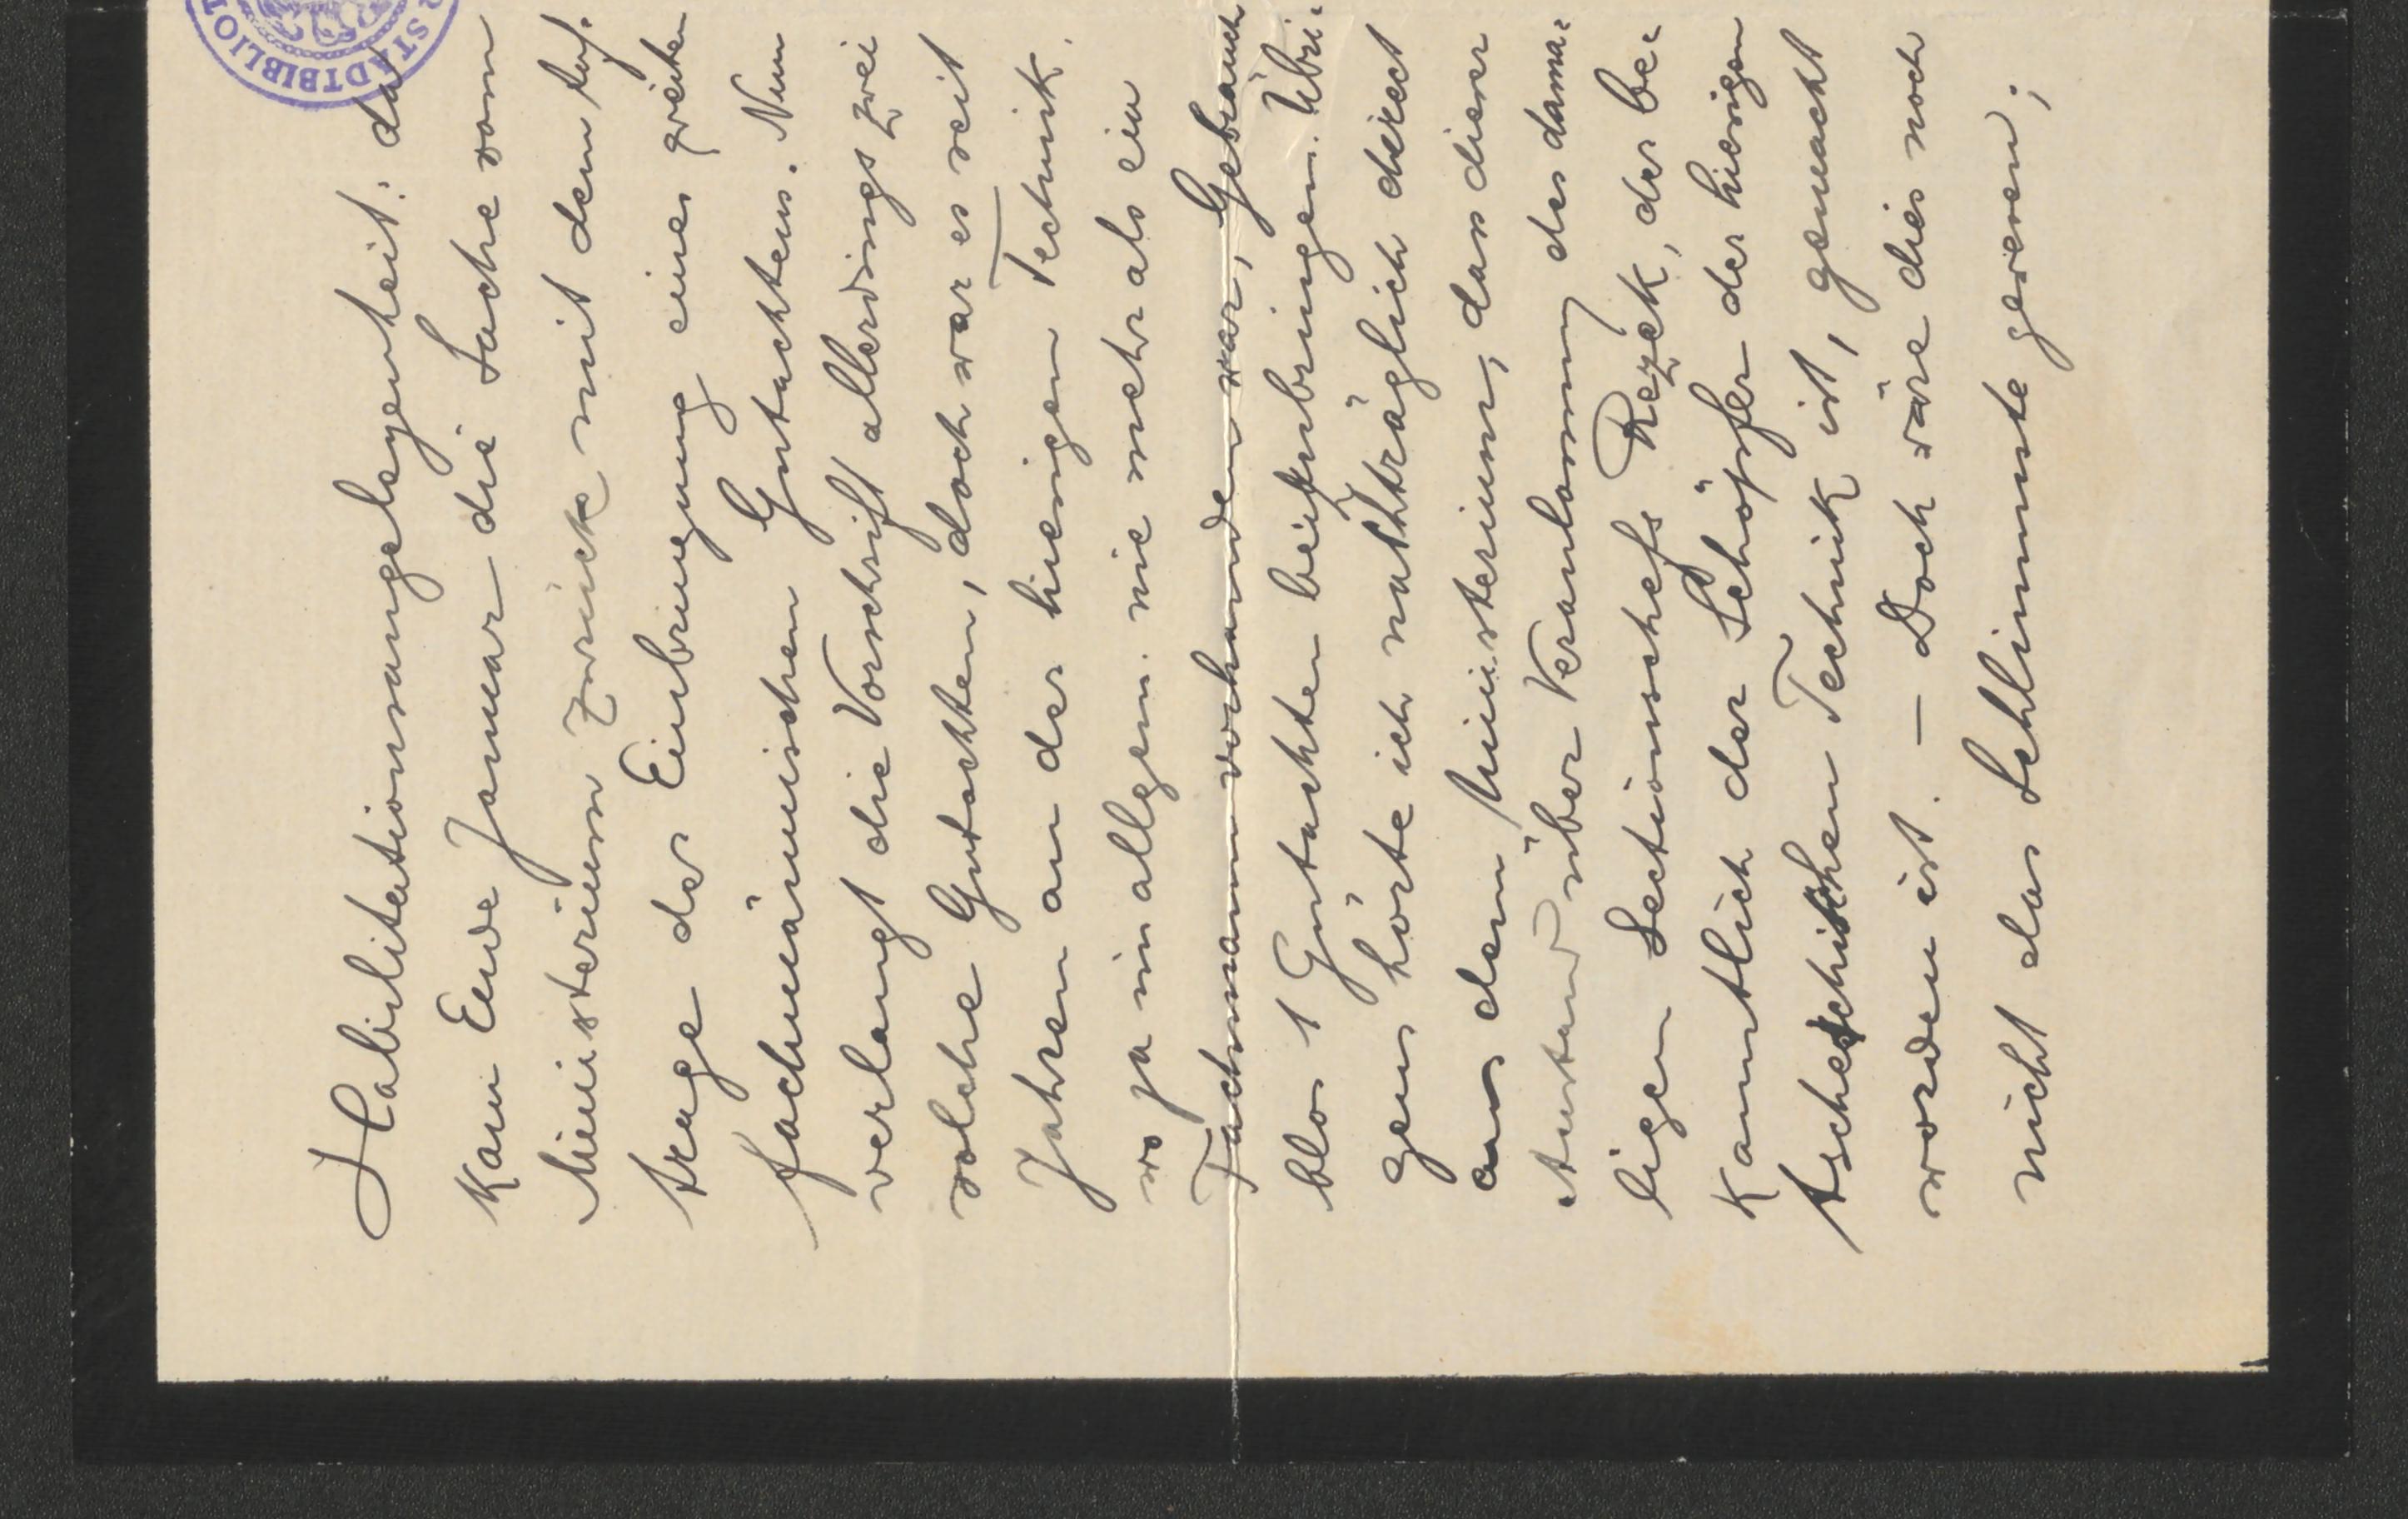 STADTBIBLIOT
Habilitationsangelegenheit: da
kam Ende Januar die Sache vom
Ministerium zurück mit dem Auf-
trage der Einbringung eines zweiten
fachmännischen Gutachtens. Nun
verlangt die Vorschrift allerdings zwei
solche Gutachten, doch war es seit
Jahren an der hiesigen Technik,
wo ja im allgem. nie mehr als ein
Fachmann vorhanden war, Gebrauch
blos 1 Gutachten beizubringen. Übri-
gens hörte ich nachträglich direct
aus dem Ministerium, dass dieser
Anstand über Veranlassung des dama-
ligen Sectionschefs Rezek, der be-
kanntlich der Schöpfer der hiesigen
tschechischen Technik ist, gemacht
worden ist. – Doch wäre dies noch
nicht das Schlimmste gewesen;